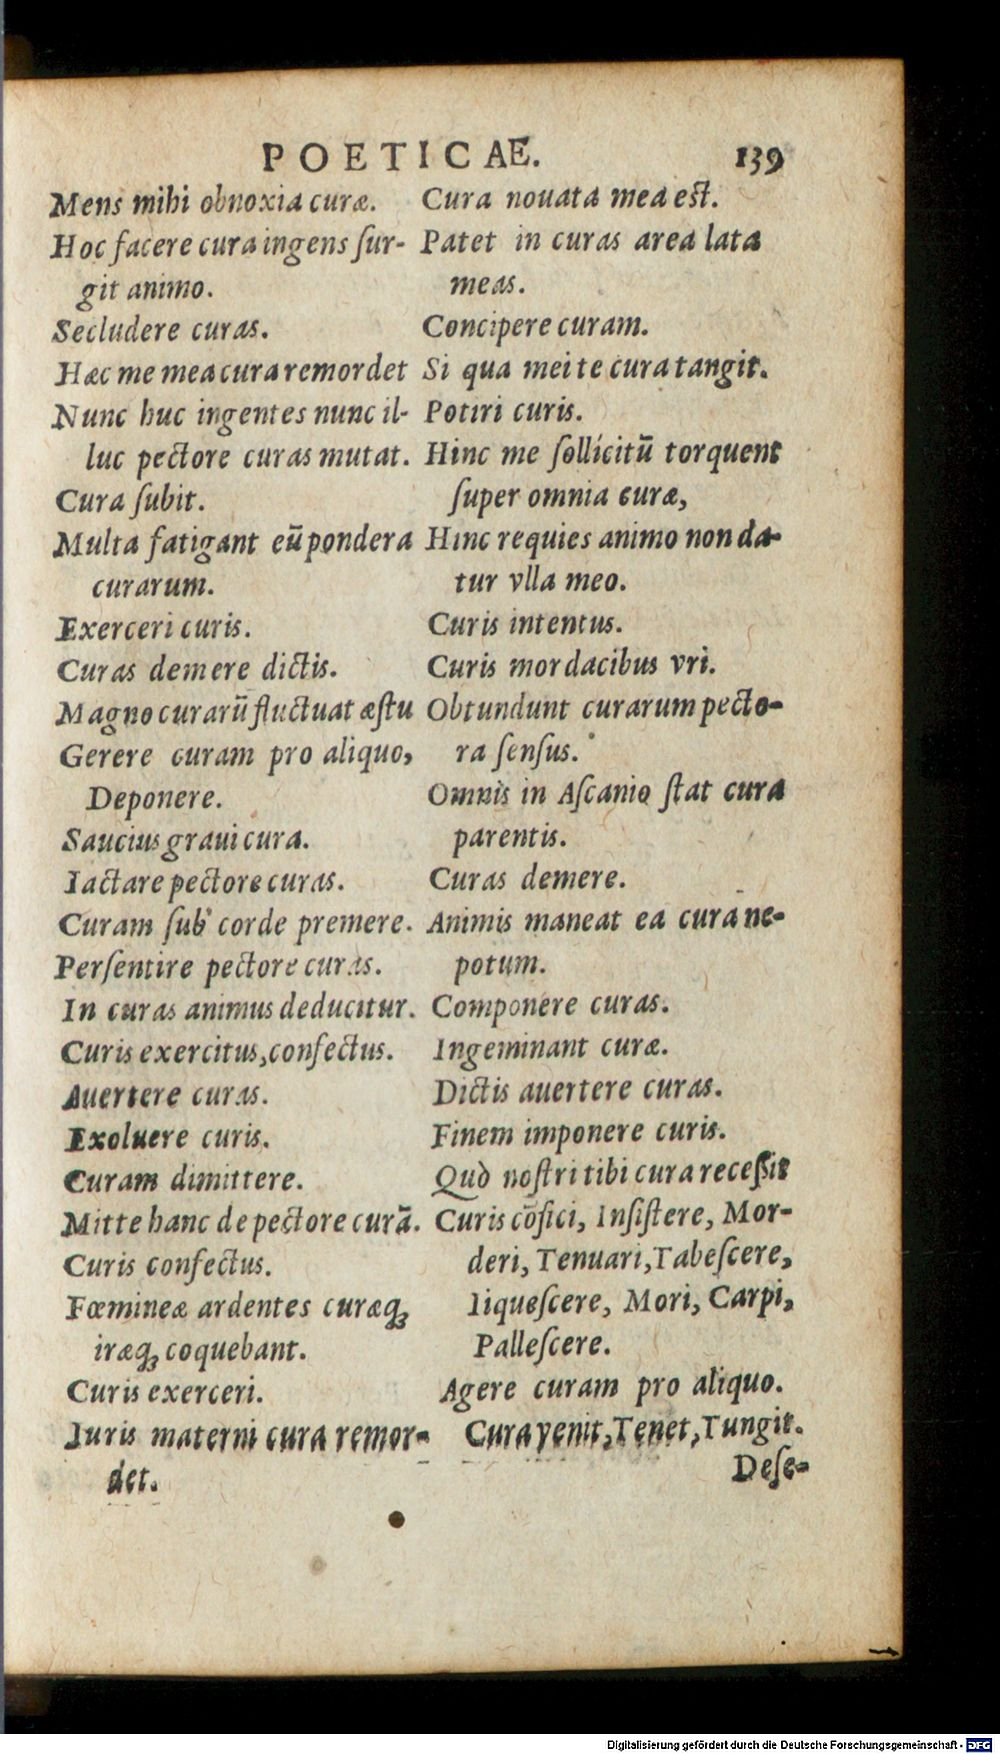 POETICAE.
139
Mens mihi obnoxia curæ.
Hoc facere cura ingens ſur-
git animo.
Secludere curas.
Hæc me mea cura remordet
Nunc huc ingentes nunc il-
luc pectore curas mutat.
Cura ſubit.
Multa fatigant eũ pondera
curarum.
Exerceri curis.
Curas demere dictis.
Magno curarũ fluctuat æſtu
Gerere curam pro aliquo,
Deponere.
Saucius graui cura.
Iactare pectore curas.
Curam ſub corde premere.
Perſentire pectore curas.
In curas animus deducitur.
Curis exercitus, confectus.
Auertere curas.
Exoluere curis.
Curam dimittere.
Mitte hanc de pectore curã.
Curis confectus.
Fœmineæ ardentes curæq́;
iræq́; coquebant.
Curis exerceri.
Iuris materni cura remor-
det.
Cura nouata mea est.
Patet in curas area lata
meas.
Concipere curam.
Si qua mei te cura tangit.
Potiri curis.
Hinc me ſollicitũ torquent
ſuper omnia curæ,
Hinc requies animo non da-
tur vlla meo.
Curis intentus.
Curis mordacibus vri.
Obtundunt curarum pecto-
ra ſenſus.
Omnis in Aſcanio ſtat cura
parentis.
Curas demere.
Animis maneat ea cura ne-
potum.
Componere curas.
Ingeminant curæ.
Dictis auertere curas.
Finem imponere curis.
Quò noſtri tibi cura receſſit
Curis cõfici, Inſiſtere, Mor-
deri, Tenuari, Tabeſcere,
liqueſcere, Mori, Carpi,
Palleſcere.
Agere curam pro aliquo.
Cura venit, Tenet, Tungit.
Deſe-
Digitalisierung gefördert durch die Deutsche Forschungsgemeinschaft - DFG